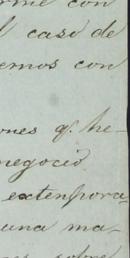 orme con
l caso de
emos con
ones q.e he-
negocio
extenpora-
una ma-